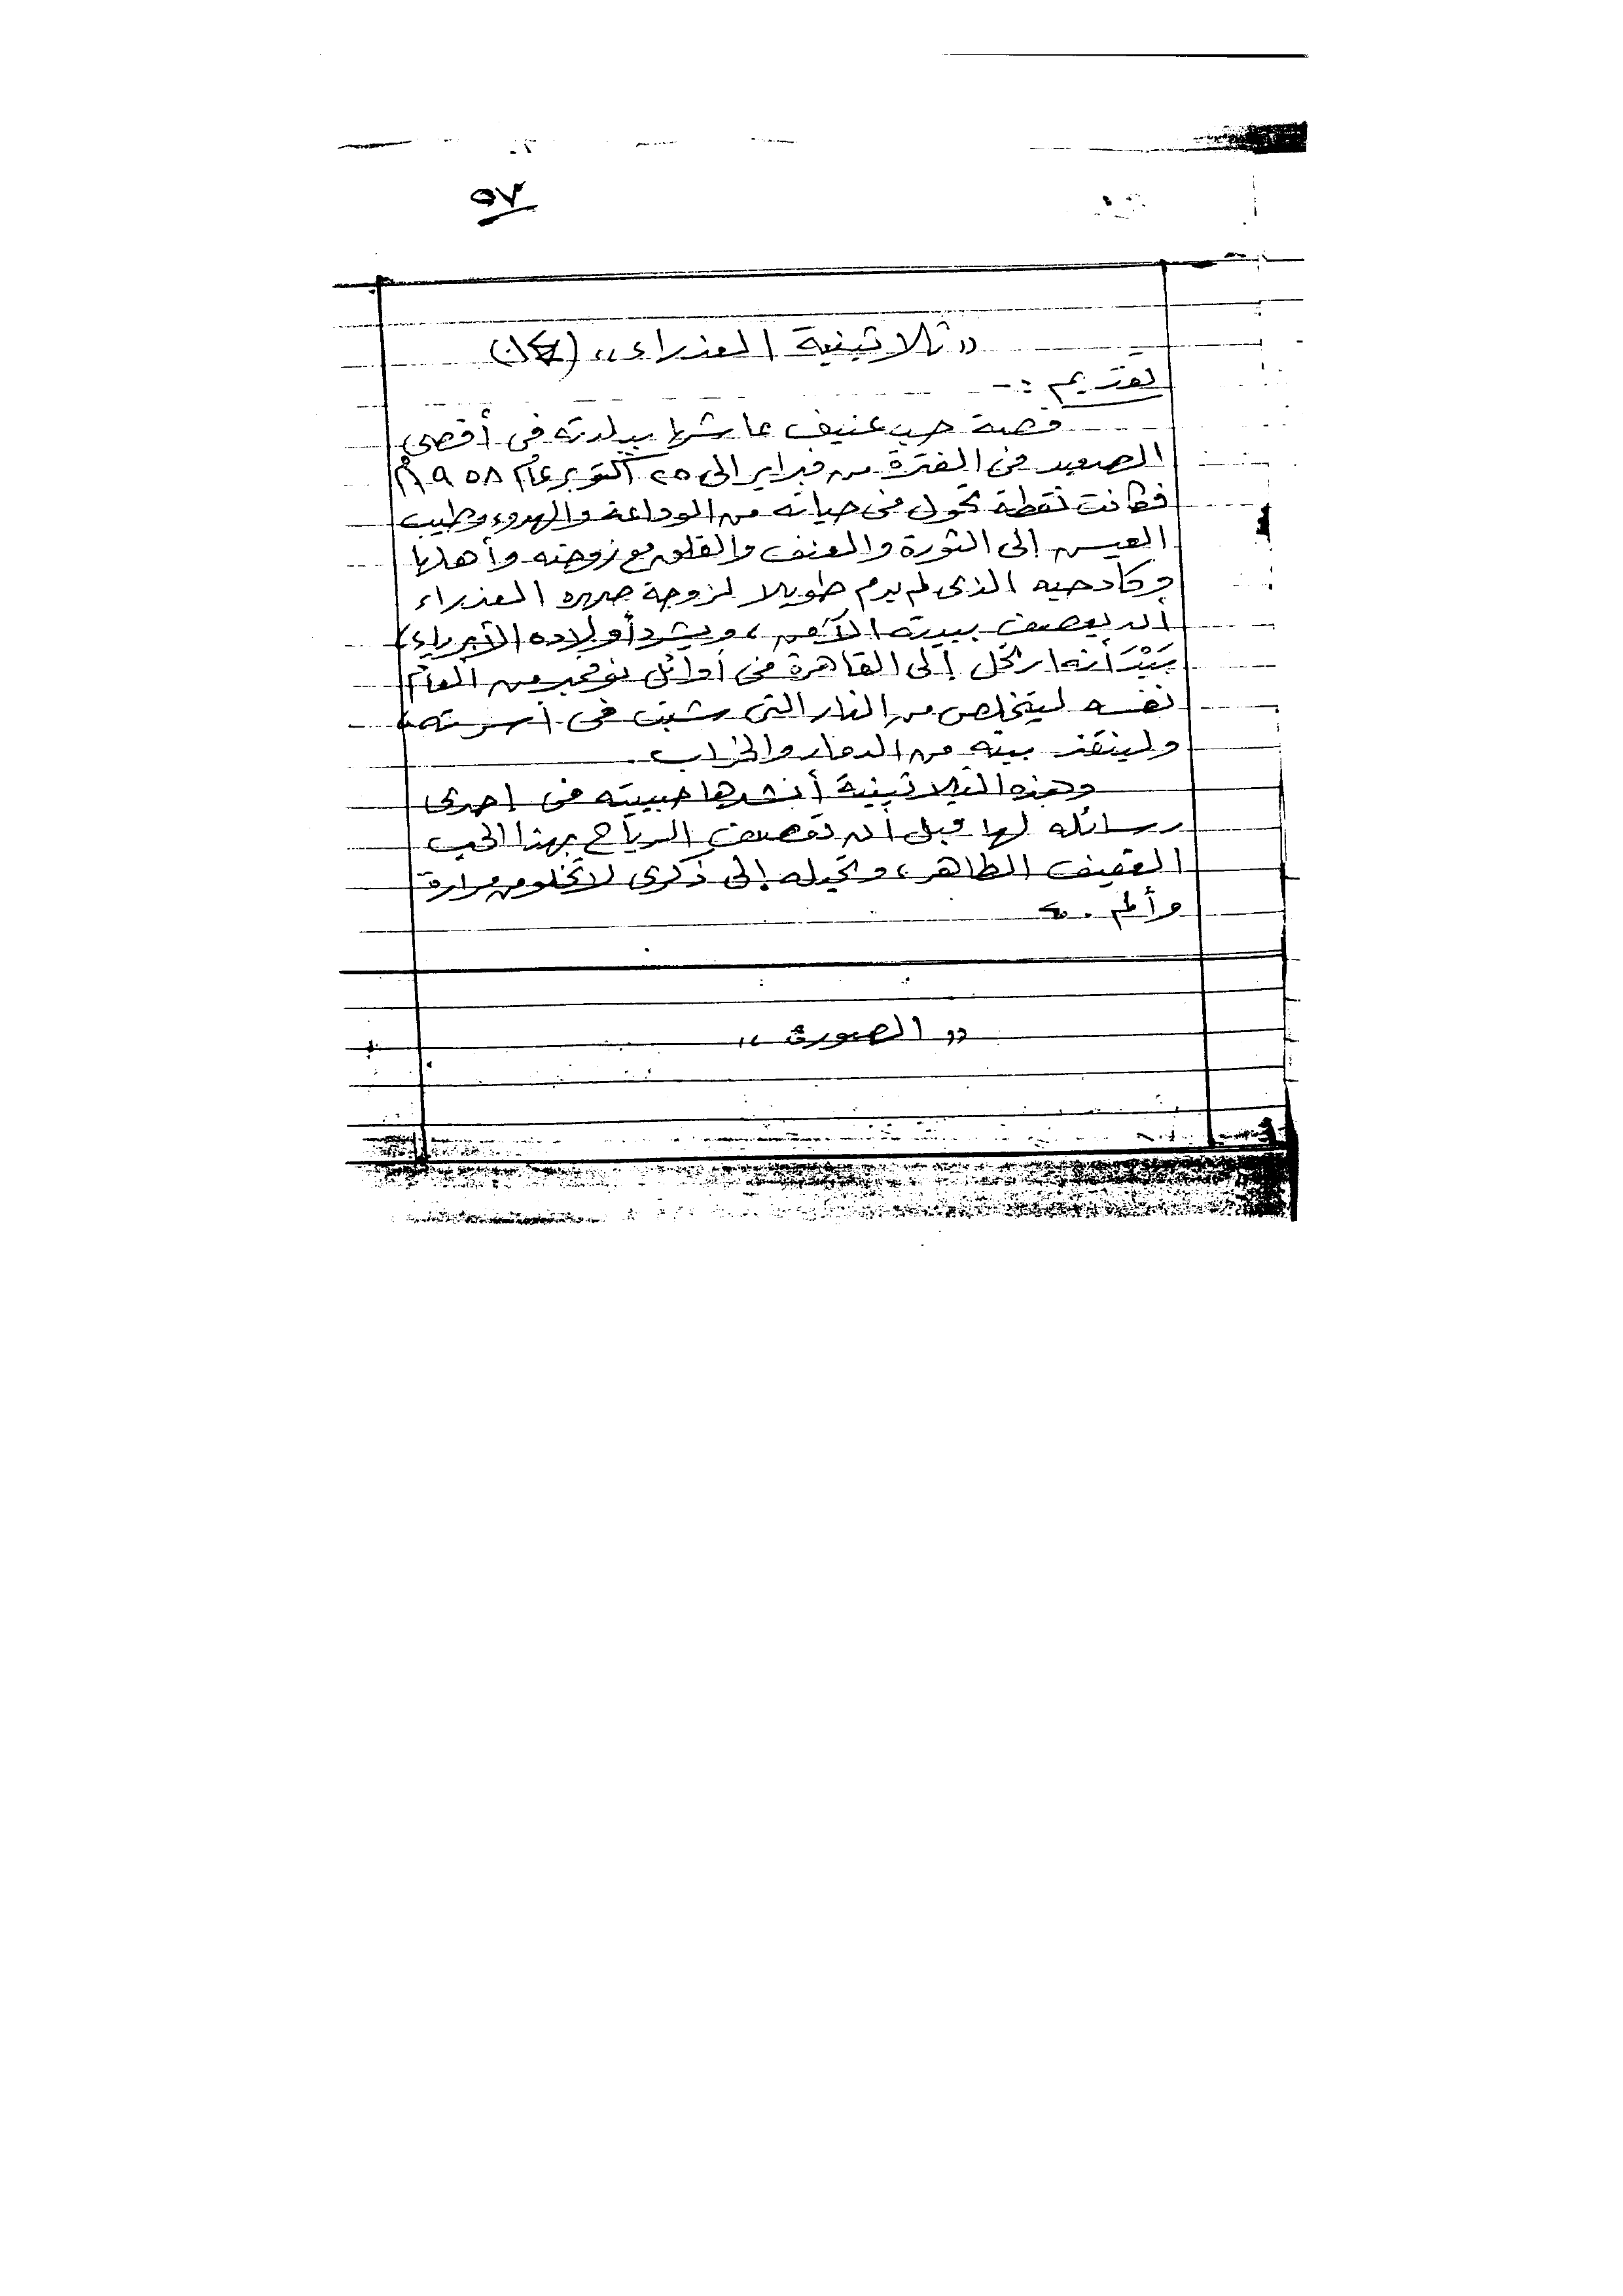 ٥٧
« ثلاثينية العذراء »
تقديم :-
قصة حب عنيف عاشها ببلدته فى أقصى
الصعيد فى الفترة من فبراير الى ٢٥ أكتوبر عام ١٩٥٨م
فكانت نقطة تحول فى حياته من الوداعة والهدوء وطيب
العيس إلى الثورة والعنف والقلق مع زوجته وأهلها
وكاد حبه الذى لم يدم طويلا لزوجة العذراء
أن يعصف ببيته الآمن ، ويشرد أولاده الأبرياء ،
بَيْدَ أنه ارتحل إلى القاهرة فى أوائل نوفمبر من العام
نفسه ليتخلص من النار التى شبت فى أسرته ،
ولينقذ بيته من الدمار والخراب .
وهذه الثلاثينية أنشدها حبيبته فى إحدى
رسائله لها قبل أن تعصف الرياح بهذا الحب
العفيف الطاهر ، وتحيله إلى ذكرى لا تخلو من مرارة
وألم .
« الصورى »